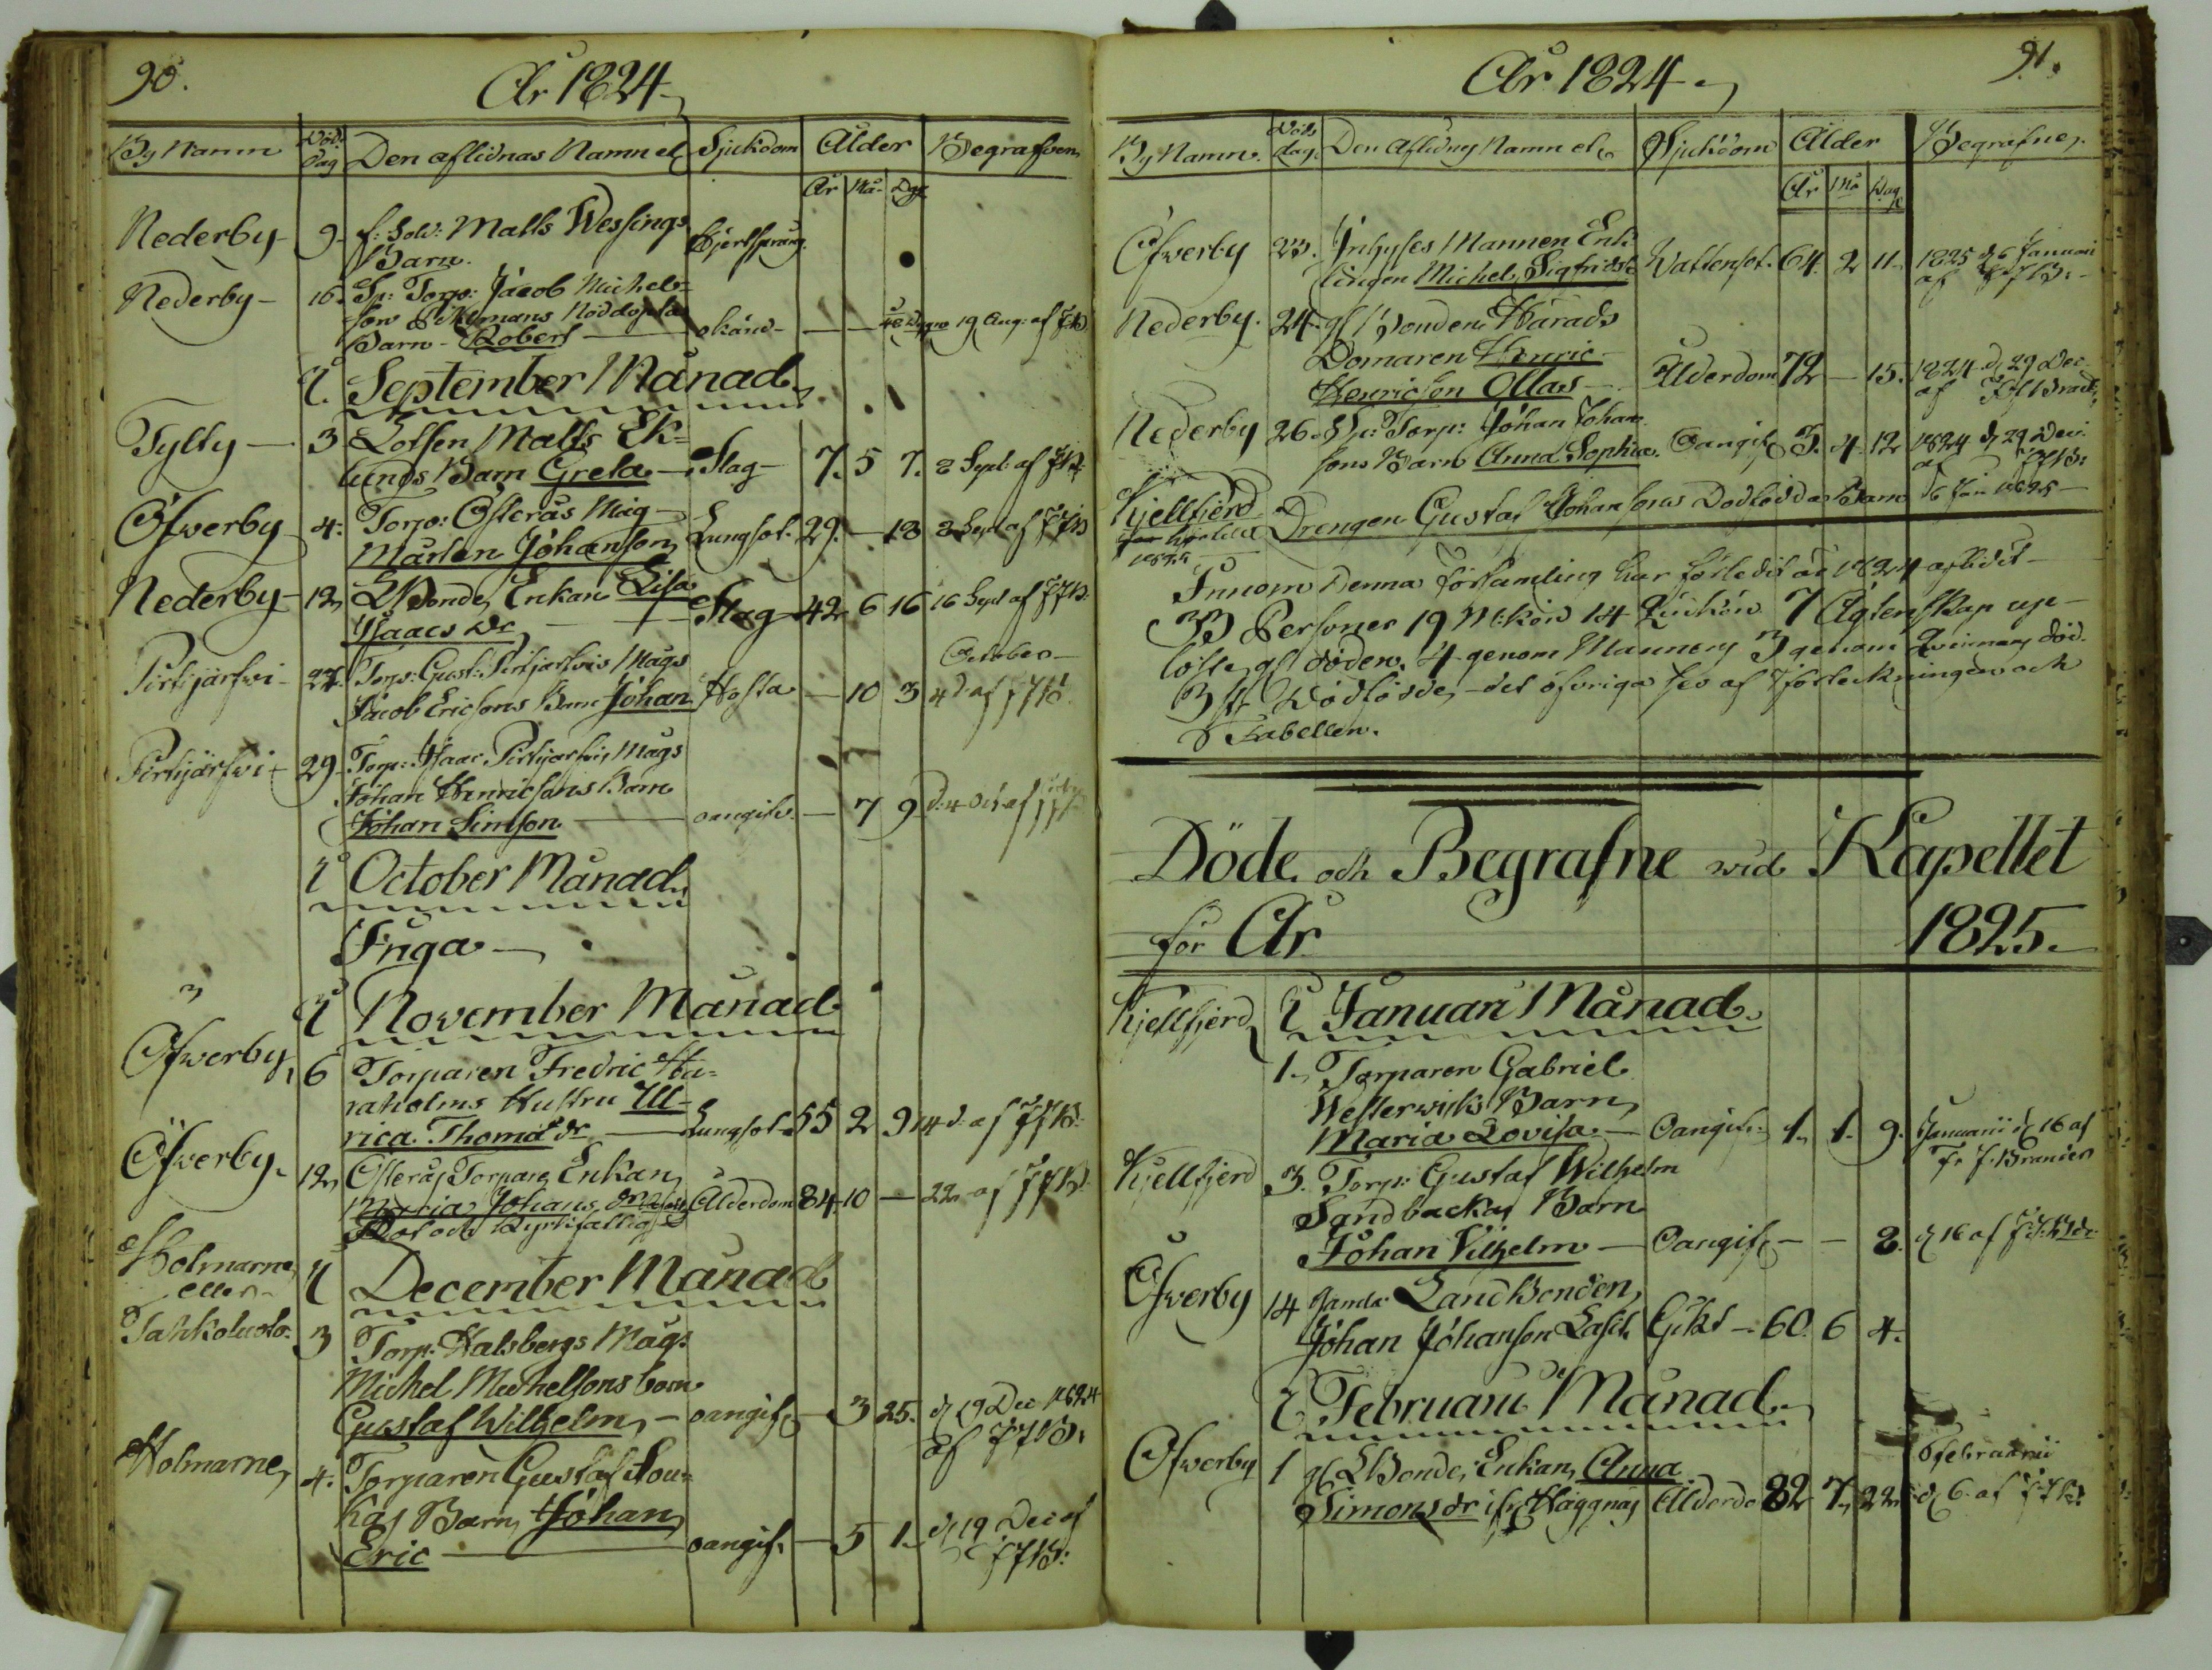 90.
År 1824
By Namn Död. Dag Den aflidnas Namn etc Sjukdom Ålder Begrafven
År Må- Dgr
Nederby 9. f: Sold: Matts Wessings
Barn.
Nederby 16. Sp: Torp: Jacob Michels
son Nöddöpta
Barn Robert okänd 19 Aug: af JJB
I September Månad
Tylty 3 Lotsen Matts Ek=
lunds Barn Greta Slag 7. 5 7. 8 Sept: af JJB
Öfwerby 4. Torp: Österås Måg
Mårten Johanson Lungsot. 29. — 18 8 Sept af JJB
Nederby 12 LBonde Enkan Lisa
Isaacs dr Slag 42 6 16 16 Sept af JJB
October
Pirtijärfwi 27. Torp: Gust: Pirtijärfvis Mågs
Jacob Ericsons Barn Johan Hosta — 10 3 4 d. af JJB
Pirtijärfwi 29. Torp: Isaac Pirtijärfvis Mågs
Johan Henricsons Barn
Johan Simson oangifv. — 7 9 d. 4 Oct. af JJB
I October Månad
Inga
I November Månad
Öfwerby 6 Torparen Fredric Ha=
raholms Hustru Ul-
rica Thomæ dr Lungsot 55 2 9 14 d. af JJB.
Öfwerby 12 Österås Torpare Enkan
Maria Johans dr Ålderdom 84 10 — 22 af JJB.
Holmarne
eller
Tahkoluoto.
I December Månad
3 Torp: Halsbergs Mågs
Michel Michelsons barn
Gustaf Wilhelm oangifv — 3 25. d 19 Dec 1824
af JJB.
Holmarne 4. Torparen Gustaf Lou=
kas Barn Johan
Eric oangif. — 5 1. d 19 Dec af
JJB:
91.
År 1824
By Namn. Döds dag. Den Aflidnes Namn etc Sjukdom Ålder Begrafne
År Må Dag
Öfwerby 23. Inhyses Mannen Enk
lingen Michel Sigfridsson Wattensot. 64. 2 11 1825 d 6 Januari
af JJB.
Nederby. 24. gl Bonden Härads
Domaren Henric
Henricson Ollas Ålderdom 72 — 15. 1824 d 29 Dec
af
Nederby 26. Sp: Torp: Johan Johan
sons Barn Anna Sophia. Oangif 3. 4. 12 1824 d 29 Dec:
af JJB:
Kjellfjerd Drengen Gustaf Johansons Dödfödda Barn 6 Jan 1825
1825
Innom denna Församling har förledit år 1824 aflidit
33 Personer 19 M:kön 14 Qvinkön 7 Ägtenskap up-
löste gl döden. 4 genom Mannens 3 genom Qvinnans död.
3 st: Dödfödde, det öfvriga ses af Förteckningen och
Tabellen.
Döde och Begrafne wid Kapellet
för År 1825.
Kjellfjerd I Januari Månad
1. Torparen Gabriel
Westerwiks Barn
Maria Lovisa Oangif. 1. 1. 9. Januarii d 16 af
Kjellfjerd 3. Torp: Gustaf Wilhelm
Sandbackas Barn
Johan Vilhelm Oangif — — 8. d 16 af
Öfwerby 14 gamla LandBonden
Johan Johanson Lassila Gikt 60. 6 4.
I Februarii Månad
Februarii
Öfwerby 1 gl LBonde Enkan Anna
Simons dr ifr Häggnäs Ålderdo 82 7. 22 d 6. af JJB.